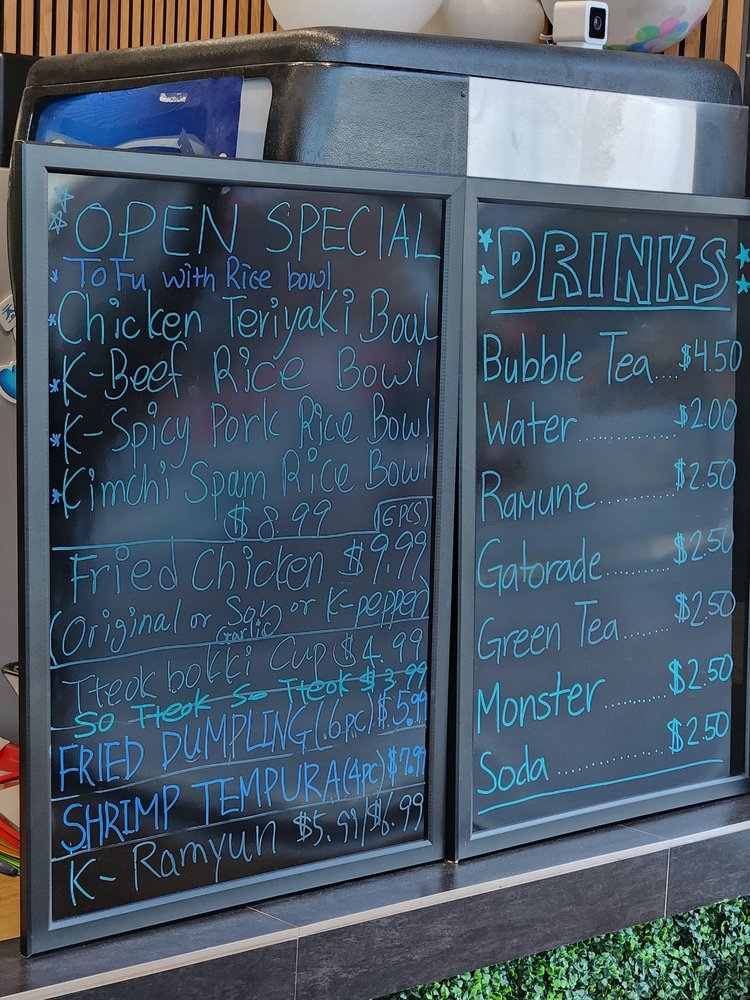 OPEN SPECIAL
ToFu with Rice bowl
Chicken Teriyaki Bowl
K-Beef Rice Bowl
K-Spicy Pork Rice Bowl
Kimchi Spam Rice Bowl
$8.99 (6PCS)
Fried Chicken $9.99
(Original or Soy or K-pepper)
Garlic
Tteok bokki Cup $4.99
So Tteok So Tteok $3.99
FRIED DUMPLING (6pc) $5.99
SHRIMP TEMPURA (4pc) $7.99
K-Ramyun $5.99/$6.99
DRINKS
Bubble Tea.... $4.50
Water............ $2.00
Ramune.......... $2.50
Gatorade......... $2.50
Green Tea...... $2.50
Monster......... $2.50
Soda............... $2.50